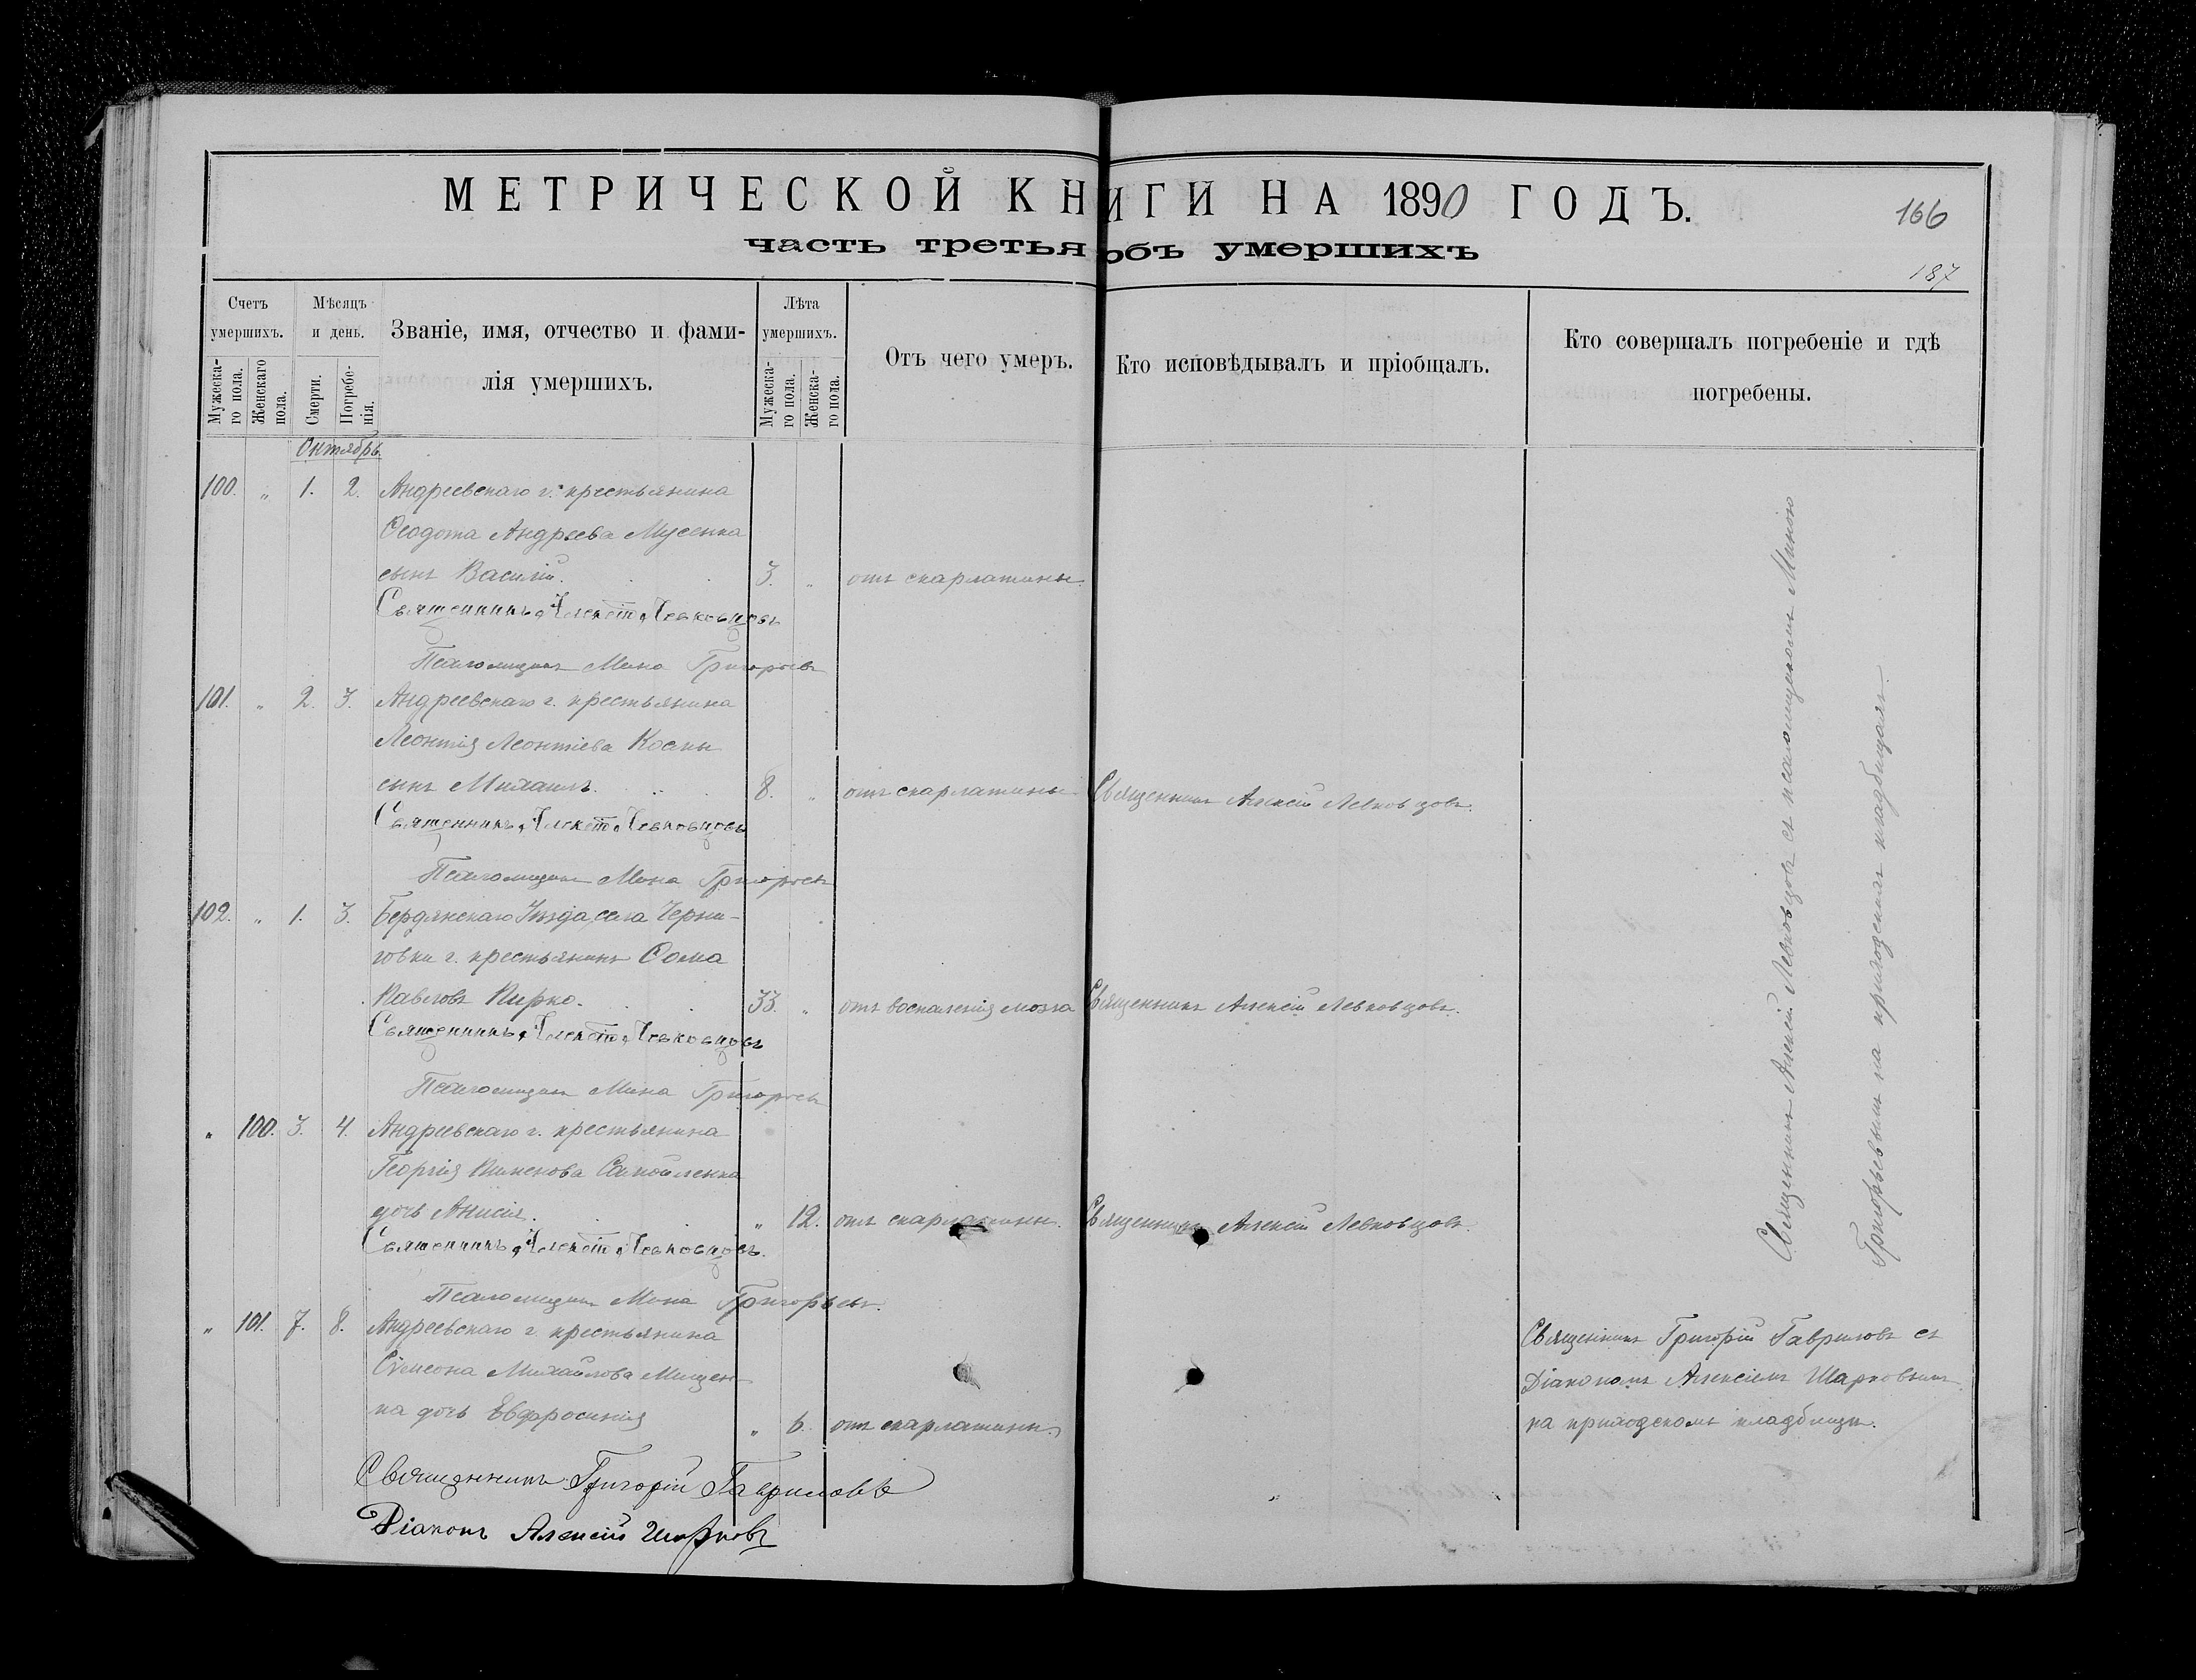 МЕТРИЧЕСКОЙ КНИГИ НА 1890 ГОДЪ.
166
часть третья объ умершихъ
187
Счетъ умершихъ.
Мужеска-го пола.
Женскаго пола.
Мѣсяцъ и день.
Смерти.
Погребе-нія.
Званіе, имя, отчество и фами-
лія умершихъ.
Лѣта умершихъ.
Мужеска-го пола.
Женска-го пола.
Отъ чего умеръ.
Кто исповѣдывалъ и пріобщалъ.
Кто совершалъ погребеніе и гдѣ
погребены.
Октябрь.
100. „ 1. 2. Андреевскаго г. крестьянина
Ѳеодота Андреева Мусенка
сынъ Василій. 3. „ отъ скарлатины.
Священникъ Алексій Левковцовъ
Псаломщикъ Мина Григорьевъ
101. „ 2. 3. Андреевскаго г. крестьянина
Леонтія Леонтіева
сынъ Михаилъ. 8. „ отъ скарлатины Священникъ Алексій Левковцовъ.
Священникъ Алексій Левковцовъ
Псаломщикъ Мина Григорьевъ
102. „ 1. 3. Бердянскаго Уѣзда, села Черни-
говки г. крестьянинъ Ѳома
Павловъ Пирко. 33. „ отъ воспаленія мозга Священникъ Алексій Левковцовъ.
Священникъ Алексій Левковцовъ
Псаломщикъ Мина Григорьевъ
„ 100. 3. 4. Андреевскаго г. крестьянина
Георгія Пименова Самойленка
дочь Анисія. „ 12. отъ скарлатины. Священникъ Алексій Левковцовъ.
Священникъ Алексій Левковцовъ.
Псаломщикъ Мина Григорьевъ.
„ 101. 7. 8. Андреевскаго г. крестьянина
Сѵмеона Михайлова Мищен-
ка дочь Евфросинія „ 6. отъ скарлатины.
Священникъ Григорій Гавриловъ
Діаконъ Алексій Шарковъ
Священникъ Алексій Левковцовъ съ псаломщикомъ Миною
Григорьевымъ на приходскомъ кладбищѣ.
Священникъ Григорій Гавриловъ съ
Діакономъ Алексіемъ Шарковымъ
на приходскомъ кладбищѣ.